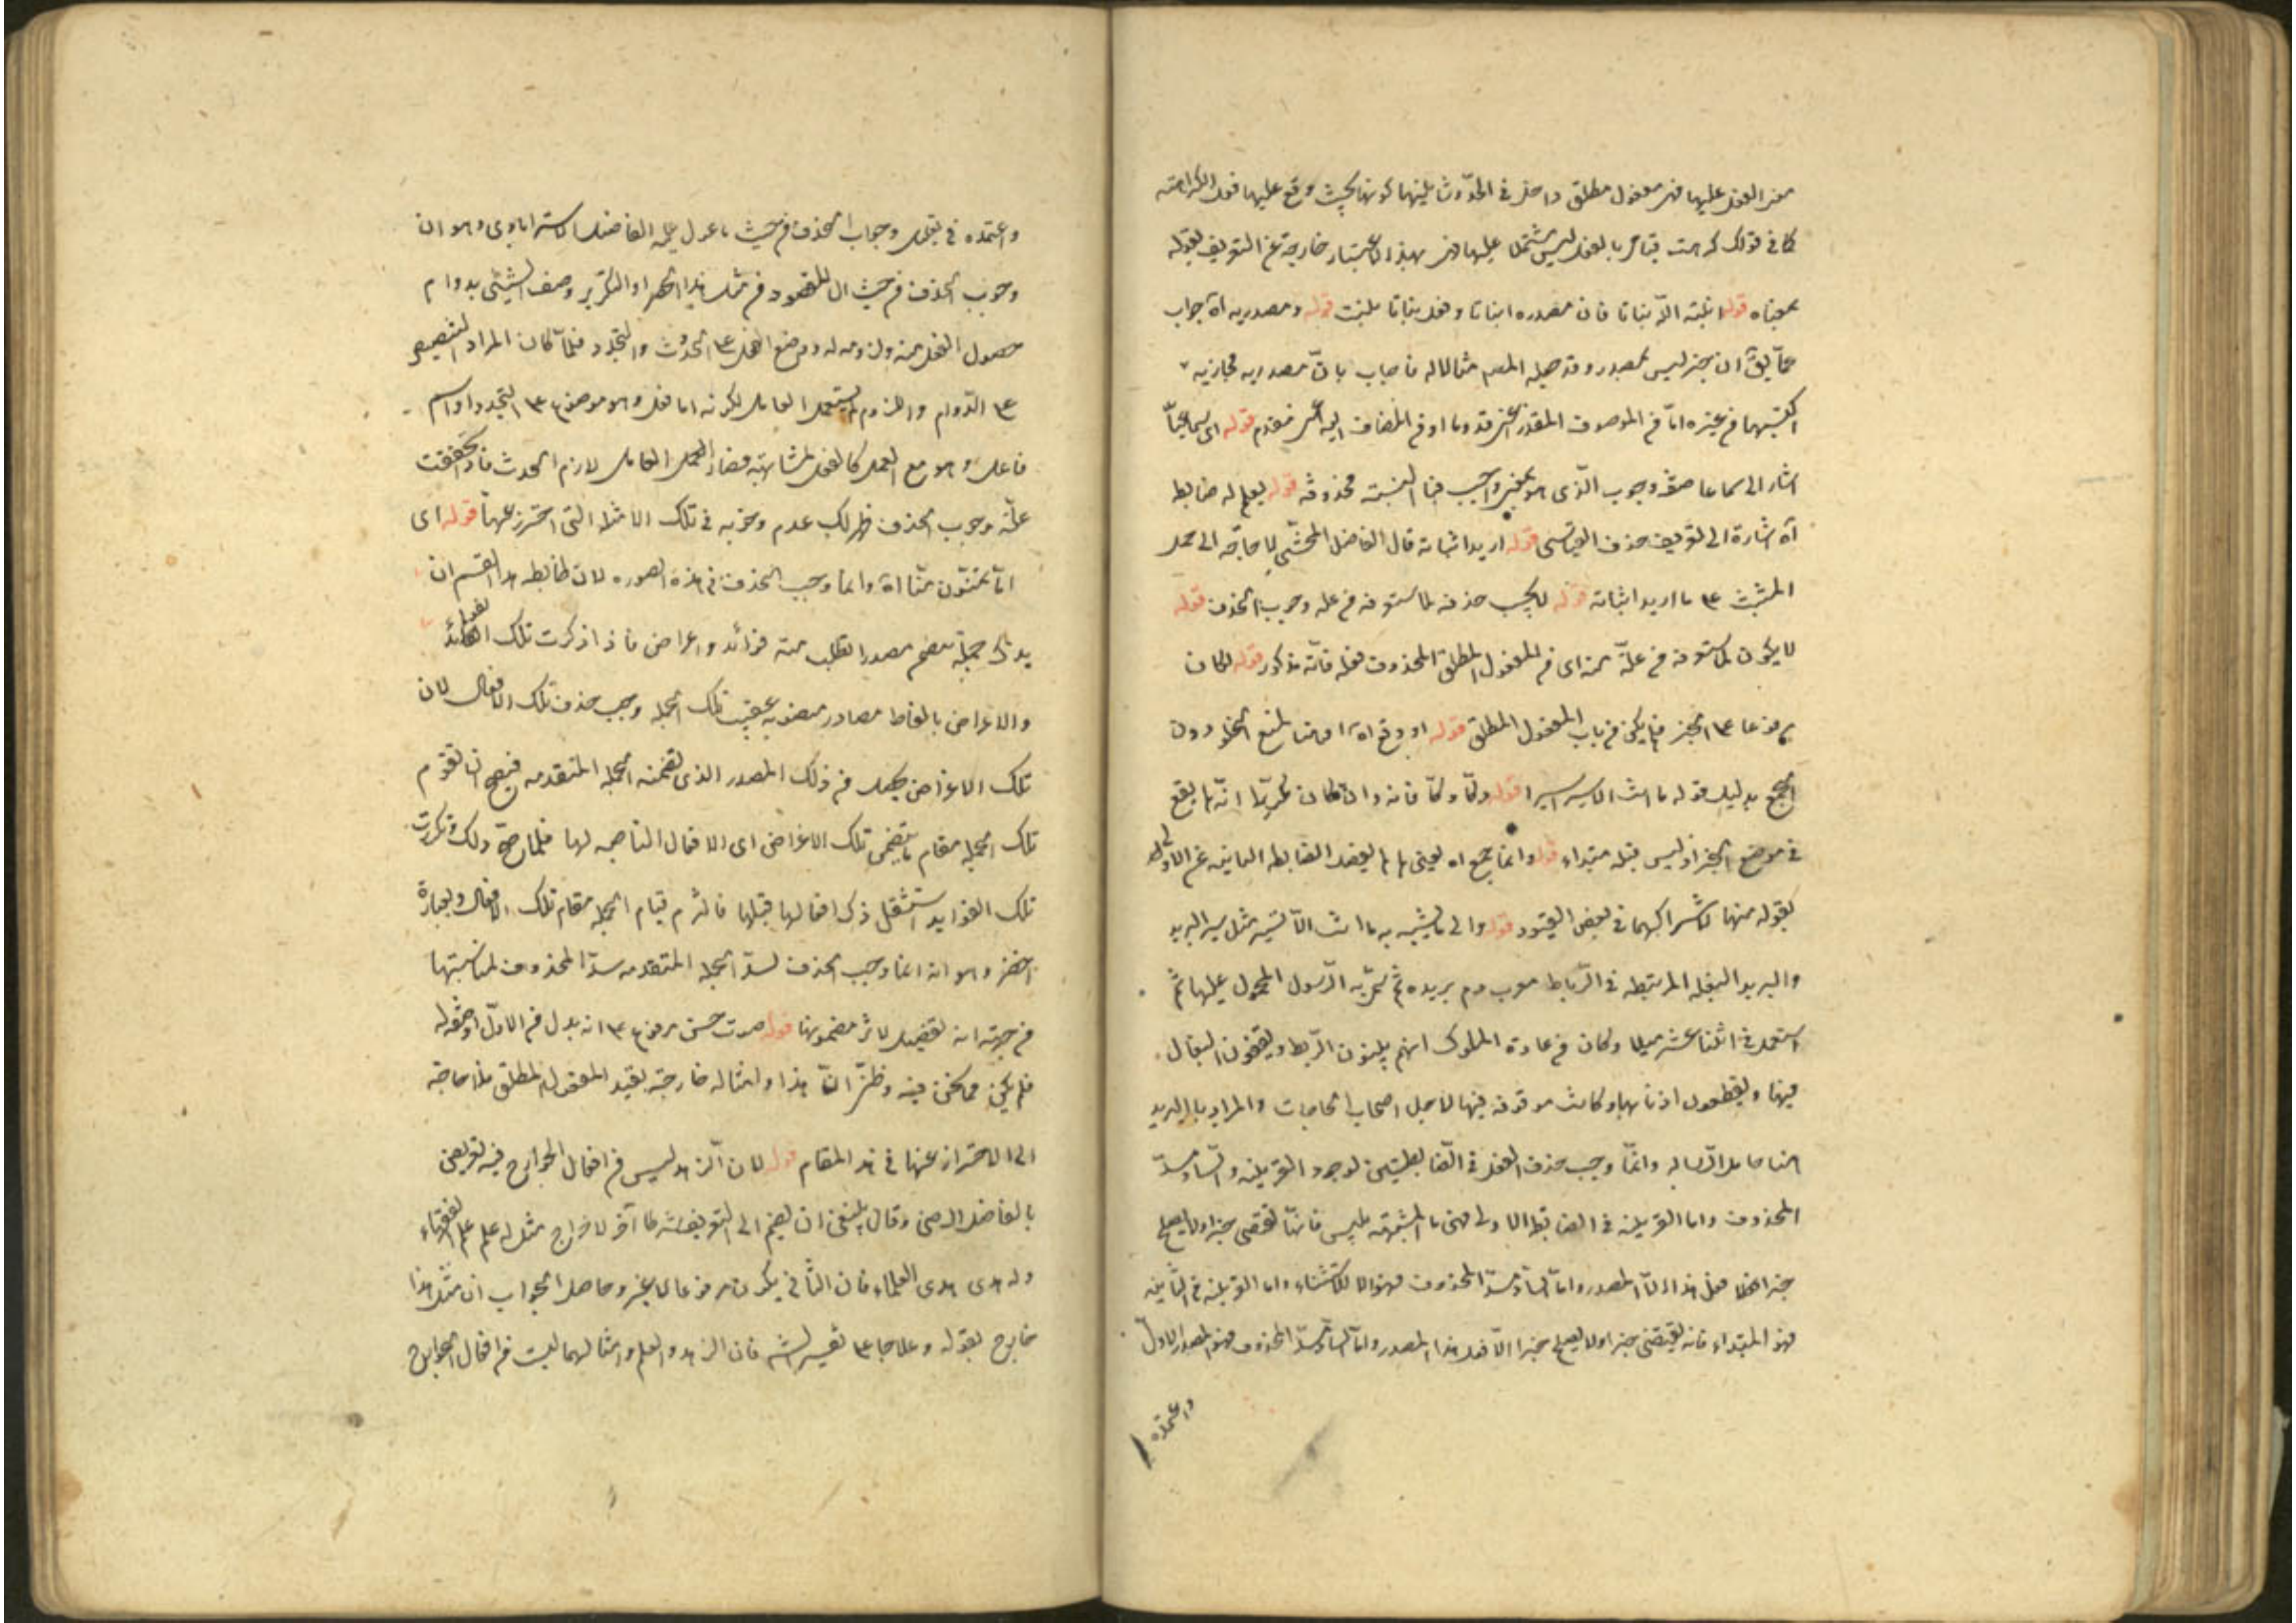 معنى الفعل عليها فهى مفعول مطلق داخل فى الحدّ وثانيتهما كونها بحيث وقع عليها فعل الكراهته
كما فى قولك كرهت قيامى بالفعل ليس مشتملا عليها فهى بهذا الاعتبار خارجة عن التعريف بقوله
بمعناه قوله انبته اللّه نباتا فان مصدره انباتا وفعل نباتا ينبت قوله ومصدريه اه جواب
عمّا يقال ان جنز ليس بمصدر وقد جعله المصم مثالا له فاجاب بانّ مصدريه مجازيه
اكتسبهما من غيره امّا من الموصوف المقدر اعنى قدوما او من المضاف اليه اعنى مقدم قوله اى سماعيّا
اشار الى سماعا صفة وجوب الذّى هو بمعنى واجب فيا النسبته محذوفه قوله يعلم له ضابط
اه اشارة الى تعريف حذف القياسى قوله اريد اثباته قال الفاضل المحشّى لا حاجّه الى حمل
المثبت على ما اريد اثباته قوله لا يجب حذفه لما ستعرفه من علة وجوب الحذف قوله
لا يكون لما ستعرفه من علّة منه اى من المفعول المطلق المحذوف فعله فانّه مذكور قوله لكان
مرفوعا على الخبر فلم يكن من باب المفعول المطلق قوله او وقع اه او هنا لمنع الخلو دون
الجمع بدليل قوله ما انت الا سير اسيرا قوله دكّا دكّا فانه وان كان مكررّا انّه لم يقع
فى موضع الخبر اذ ليس قبله مبتداء قوله وانما جمع اه يعنى لم لم يفصل الضابطه الثانيه عن الاولى
بقوله منها لاشتراكهما فى بعض القيود قوله والى ما يشبه به ما انت الاّ تسير مثل سير البريد
والبريد البغله المرتبطه فى الرّباط معرب دم بريده ثم سمّى به الرّسول المحمول عليها ثم
استعمل فى اثنا عشر ميلا وكان من عادة الملوك انهم يبنون الرّبط ويقفون البغال
فيها ويقطعون اذنابها وكانت موقوفه فيها لاجل اصحاب الحاجات والمراد بالبريد
هنا حامل الرّساله وانمّا وجب حذف الفعل فى الضّابطتين لوجود القرينه والسّاد مسدّ
المحذوف واما القرينه فى الضابطه الاولى فهى ما المشبهته بليس فانهّا تقتضى خبرا ولا يصلح
خبرا هنا الا فعل هذا المصدر وامّا السادّ مسدّ المحذوف فهو الا للاستثناء واما القرينه فى الثّانيه
فهو المبتداء فانه يقتضى خبرا ولا يصلح خبرا الاّ فعل هذا المصدر وامّا السادّ مسدّ المحذوف فهو المصدر الاوّل
واعتمده
واعتمده فى تعليل وجوب الحذف من حيث ما عول عليه الفاضل الاسترابادى وهو ان
وجوب الحذف من حيث ان المقصود من مثل هذا الحصر او التكرير وصف الشيئ بدوام
حصول الفعل منه ولزومه له ووضع الفعل على الحدوث والتجدد فلمّا كان المراد التنصيص
على الدّوام واللزوم لم يستعمل العامل لكونه اما فعل وهو موضوع على التجدد او اسم
فاعل وهو مع العمل كالفعل لمشابهته فصار العمل العامل لازم الحدث فاذا تحققت
علّة وجوب الحذف ظهر لك عدم وجوبه فى تلك الامثله التى احترز عنها قوله اى
امّا تمنّون منّا اه وانما وجب الحذف فى هذه الصوره لان ضابطه هذا القسم ان
يذكر جملة تتضمن مصدرا تطلب منه فوائد واغراض فاذا ذكرت تلك الفوائد
والاغراض بالفاظ مصادر منصوبه عقيب تلك الجمله وجب حذف تلك الافعال لان
تلك الاغراض تحصل من ذلك المصدر الذى تضمنه الجمله المتقدمه فيصح ان تقوم
تلك الجمله مقام ما يتضمن تلك الاغراض اى الافعال الناصبه لها فلما صحّ ذلك وتكررت
تلك الفوايد استثقل ذكر افعالها قبلها فالتزم قيام الجمله مقام تلك الافعال وبعبارة
اخضر وهو انه انما وجب الحذف لسدّ الجمله المتقدمه مسدّ المحذوف لمناسبتها
من جهته انه تفصيل لاثر مضمونها قوله صوت حسن مرفوع على انه بدل من الاوّل او صفة له
فلم يكن مما نحن فيه وظنّى انّ هذا وامثاله خارجته بقيد المفعول المطلق فلا حاجته
الى الاحتراز عنها فى هذا المقام قوله لان الزهد ليس من افعال الجوارح فيه تعريض
بالفاضل الرضى وقال ينبغى ان يضم الى التعريف شرطا آخر لاخراج مثل له علم علم الفقهاء
وله هدى هدى العلماء فان الثانى يكون مرفوعا لا غير وحاصل الجواب ان مثل هذا
خارج بقوله وعلاجا على تفسير الشم فان الزهد والعلم وامثالهما ليست من افعال الجوارح